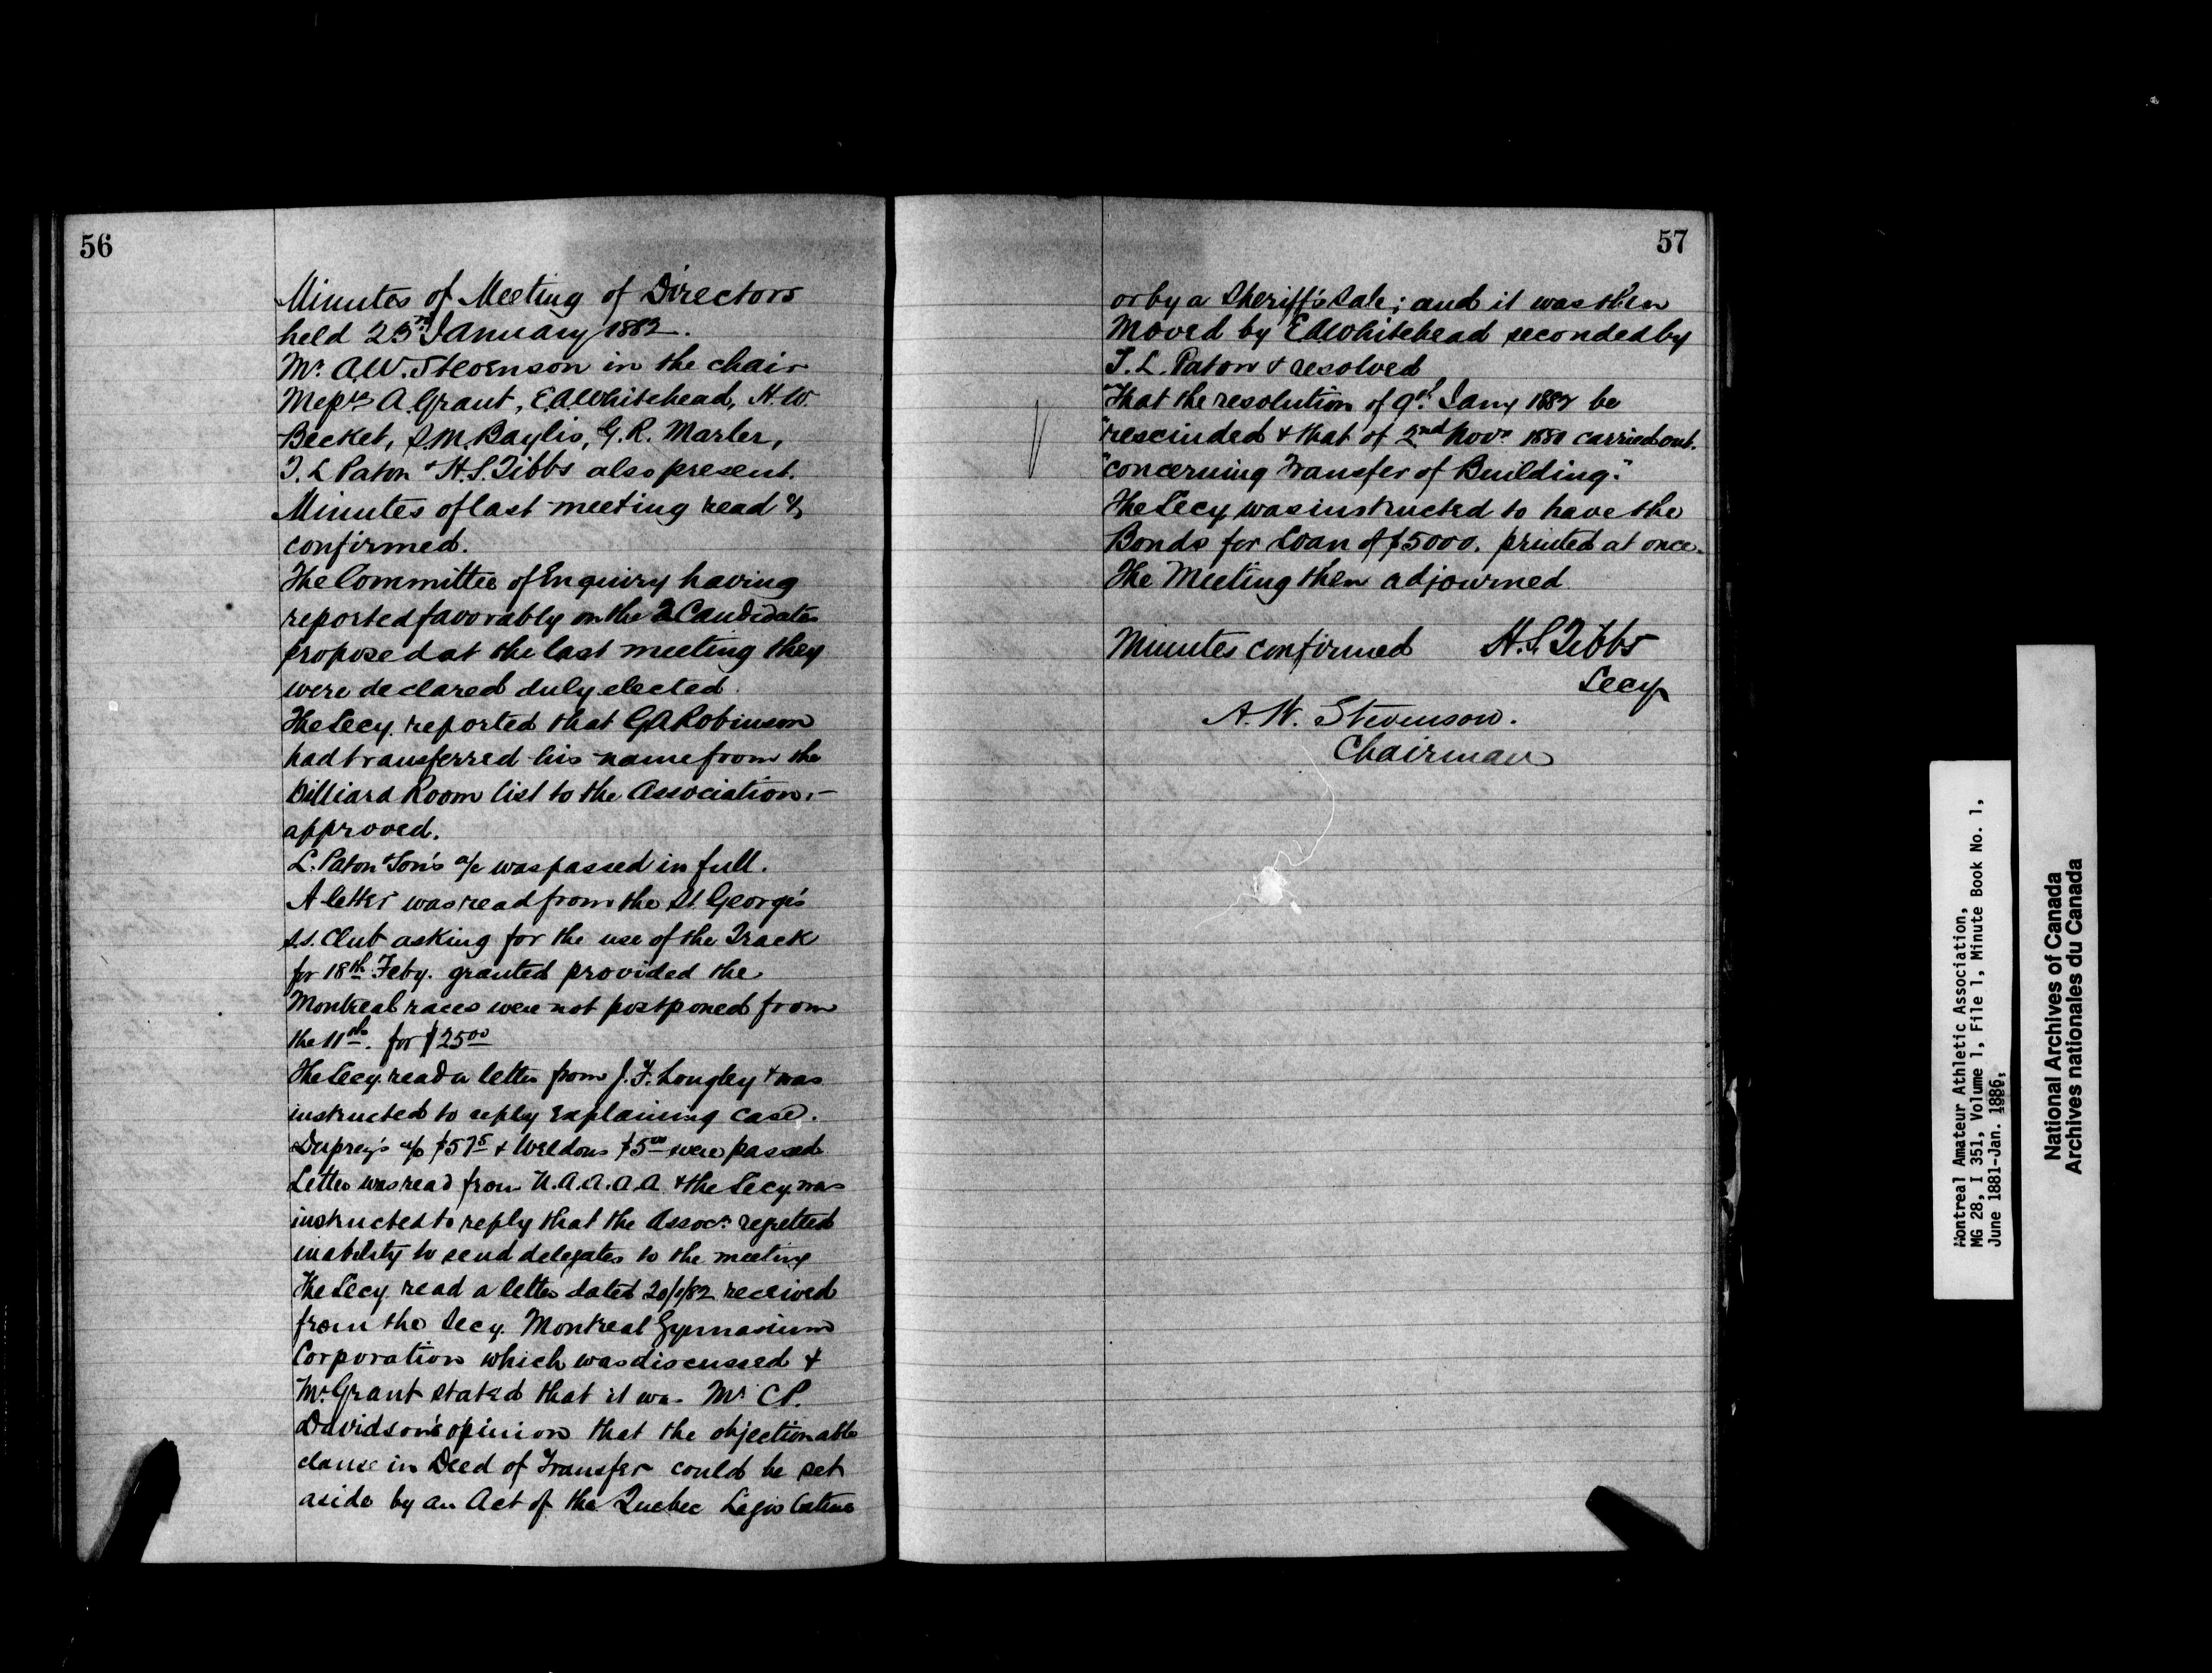 56
Minutes of Meeting of Directors
held 23rd January 1882.
Mr. A.W. Stevenson in the chair
Messrs A. Grant, E.A. Whitehead, H.W.
Becket, S.M. Baylis, G.R. Marler,
T.L. Paton & H.S. Tibbs also present.
Minutes of last meeting read &
confirmed.
The Committee of Enquiry having
reported favorably on the 2 Candidates
proposed at the last meeting they
were declared duly elected.
The Secy. reported that G.A. Robinson
had transferred his name from the
Billiard Room list to the Association.–
approved.
L. Paton & Son's a/c was passed in full.
A letter was read from the St. George's
S.S. Club asking for the use of the Track
for 18th Feby. granted provided the
Montreal races were not postponed from
the 11th. for $25.00
The Secy. read a letter from J.F. Longley & was
instructed to reply explaining case.
Duprey's a/c $5 & Weldons $5.00 were passed.
Letter was read from N.A.A.A.A. & the Secy. was
instructed to reply that the Assocn. regretted
inability to send delegates to the meeting
The Secy. read a letter dated 20/1/82 received
from the Secy. Montreal Gymnasium
Corporation which was discussed &
Mr. Grant stated that it was Mr. C.P.
Davidson's opinion that the objectionable
clause in Deed of Transfer could be set
aside by an Act of the Quebec Legislature
57
or by a Sheriff's Sale; and it was then
Moved by E.A. Whitehead seconded by
T.L. Paton & resolved
"That the resolution of 9th Jany 1882 be
"rescinded & that of 2nd Novr. carried out.
"concerning Transfer of Building."
The Secy was instructed to have the
Bonds for Loan of $5000. printed at once.
The Meeting then adjourned
Minutes confirmed H.S. Tibbs
Secy
A.W. Stevenson.
Chairman
Montreal Amateur Athletic Association,
MG 28, I 351, Volume 1, File 1, Minute Book No. 1,
June 1881-Jan. 1886,
National Archives of Canada
Archives nationales du Canada